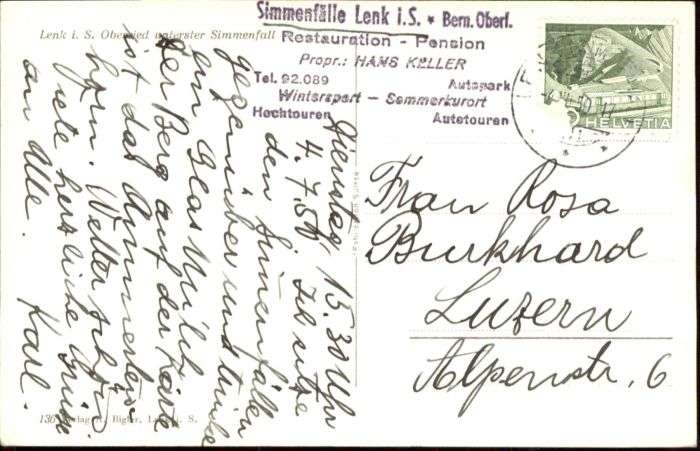 Lenk i. S. Oberried unterster Simmenfall
Simmenfälle Lenk i.S. * Bern. Oberl.
Restauration - Pension
Propr.: HANS KELLER
Tel. 92.089 Autopark
Wintersport - Sommerkurort
Hochtouren Autotouren
HELVETIA
Dienstag 15.30 Uhr
4.7.50 Ich sitze
den Simmenfällen
gegenüber und trinke
ein Glas Milch
Der Berg auf der Karte
ist das Ammerten-
horn. Wetter schön
viele herzliche Grüsse
an Alle. Karl.
Frau Rosa
Burkhard
Luzern
Alpenstr. 6
136 Verlag R. Bigler, Lenk i. S.